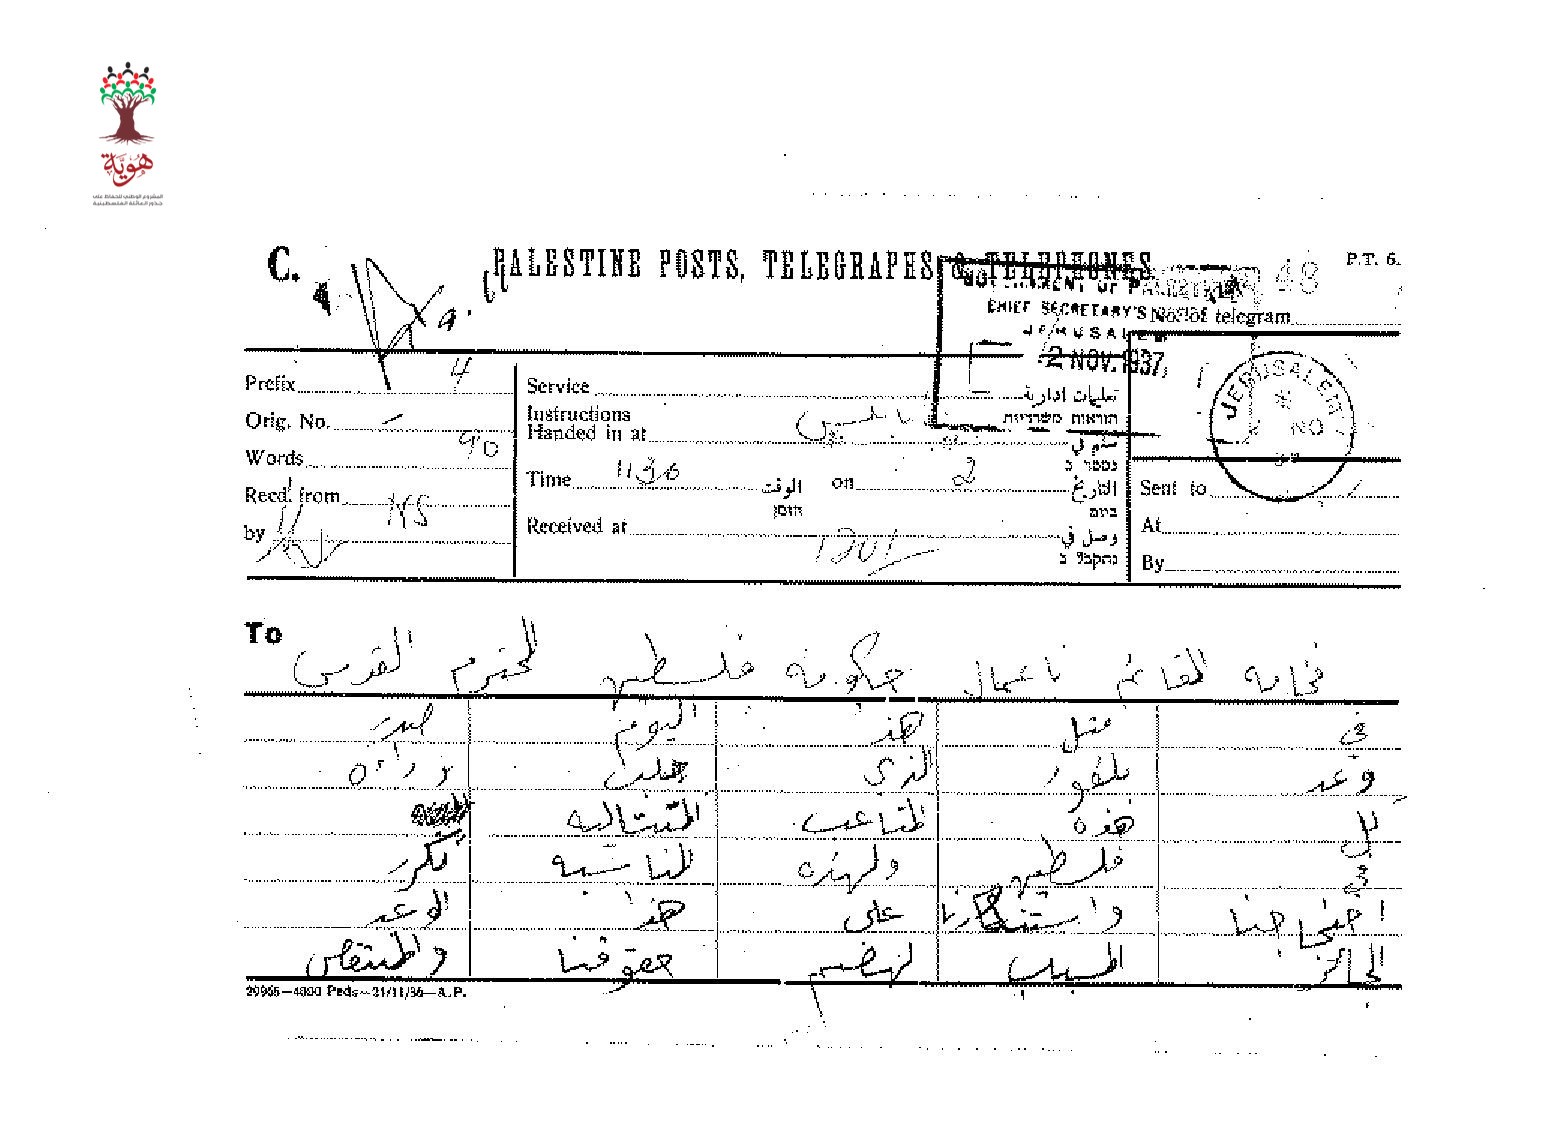 هوية
المشروع الوطني للحفاظ على
جذور العائلة الفلسطينية
C. PALESTINE POSTS, TELEGRAPHS & TELEPHONES. P.T. 6.
48
GOVERNMENT OF PALESTINE
CHIEF SECRETARY'S No. of telegram
JERUSALEM
2 NOV. 1937
JERUSALEM
NO
37
Prefix 4
Orig. No. –
Words 90
Recd. from NS
by
Service تعليمات ادارية
Instructions הוראות משרדיות
Handed in at نابلس سلم في
נמסר ב
Time 1130 الوقت on 2 التاريخ
הזמן ביום
Received at 1201 وصل في
נתקבל ב
Sent to
At
By
To
فخامة القائم باعمال حكومة فلسطين المحترم القدس
في مثل هذا اليوم صدر
وعد بلفور الذي جلب وراءه
كل هذه المتاعب المتتالية
في فلسطين ولهذه المناسبة نكرر
احتجاجنا واستنكارنا على هذا الوعد
الجائر المسبب لهضم حقوقنا والمنتقص
29955—4000 Pads—21/11/36—A.P.